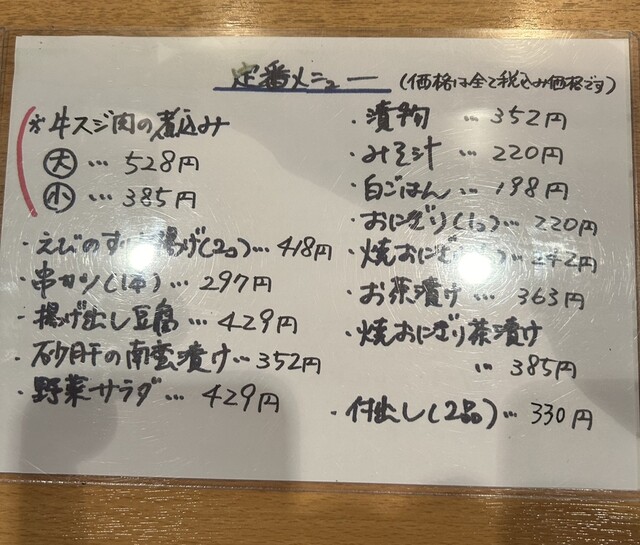 定番メニュー (価格は全て税込み価格です)
※牛スジ肉の煮込み
大 … 528円
小 … 385円
・えびのす 揚げ(2コ)… 418円
・串カツ(1本)… 297円
・揚げ出し豆腐 … 429円
・砂肝の南蛮漬け … 352円
・野菜サラダ … 429円
・漬物 … 352円
・みそ汁 … 220円
・白ごはん … 198円
・おにぎり(1コ)… 220円
・焼おにぎ )… 242円
・お茶漬け … 363円
・焼おにぎり茶漬け
… 385円
・付出し(2品)… 330円